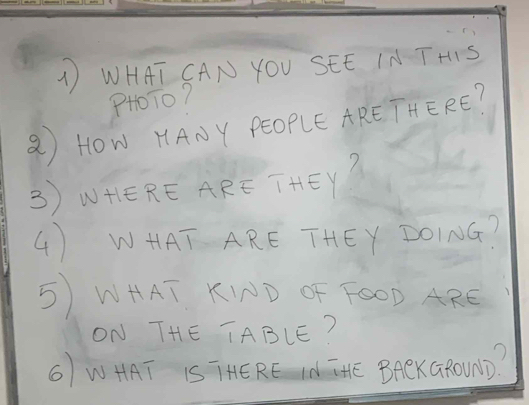 1) WHAT CAN YOU SEE IN THIS
PHOTO?
2) HOW MANY PEOPLE ARE THERE?
3) WHERE ARE THEY?
4) WHAT ARE THEY DOING?
5) WHAT KIND OF FOOD ARE
ON THE TABLE?
6) WHAT IS THERE IN THE BACKGROUND?